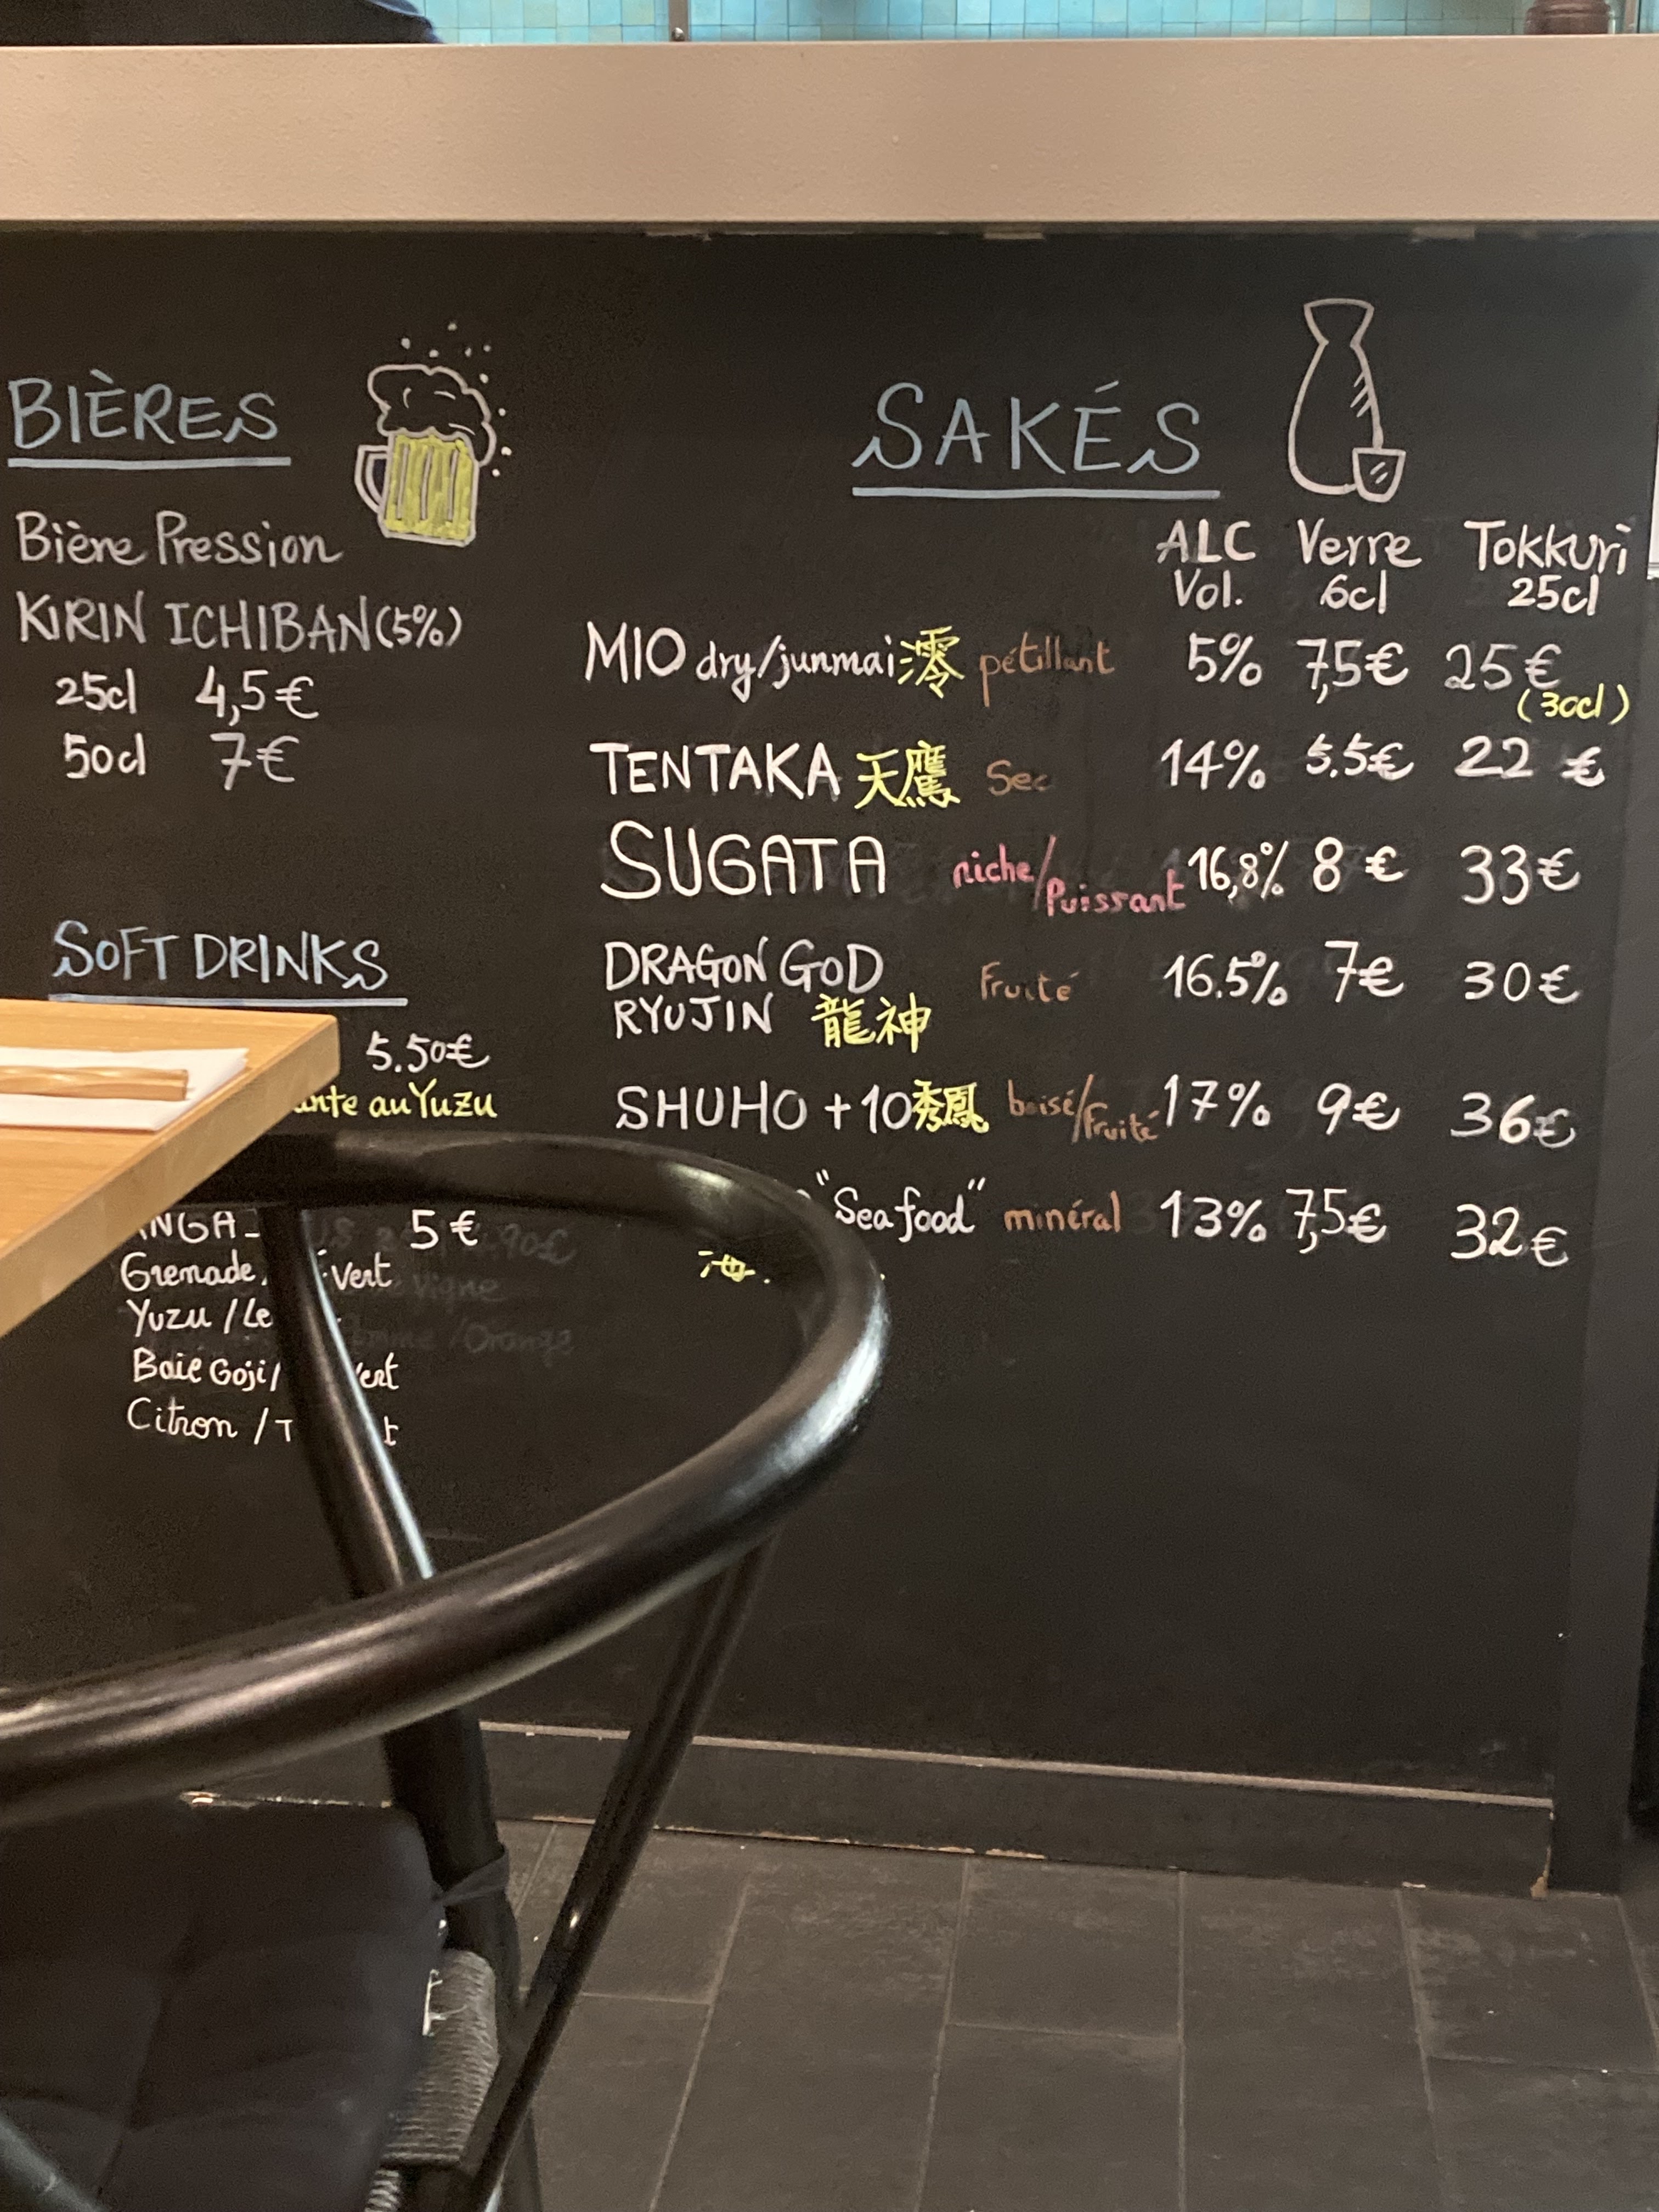 BIÈRES
Bière Pression
KIRIN ICHIBAN (5%)
25cl 4,5€
50cl 7€
SOFT DRINKS
5.50€
au Yuzu
5€
Grenade
Yuzu /
Baie Goji/
Citron /
SAKÉS
ALC Verre Tokkuri
Vol. 6cl 25cl
MIO dry/junmai 澪 pétillant 5% 7,5€ 25€
(30cl)
TENTAKA 天鷹 Sec 14% 5.5€ 22 €
SUGATA riche/Puissant 16,8% 8 € 33€
DRAGON GOD Fruité 16.5% 7€ 30€
RYUJIN 龍神
SHUHO +10 秀鳳 boisé/Fruité 17% 9€ 36€
"Seafood" minéral 13% 7,5€ 32€